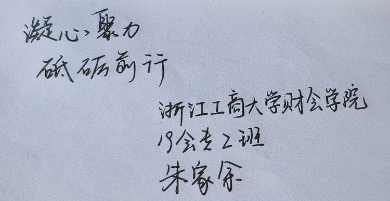 凝心聚力
砥砺前行
浙江工商大学财会学院
19会专2班
朱家余